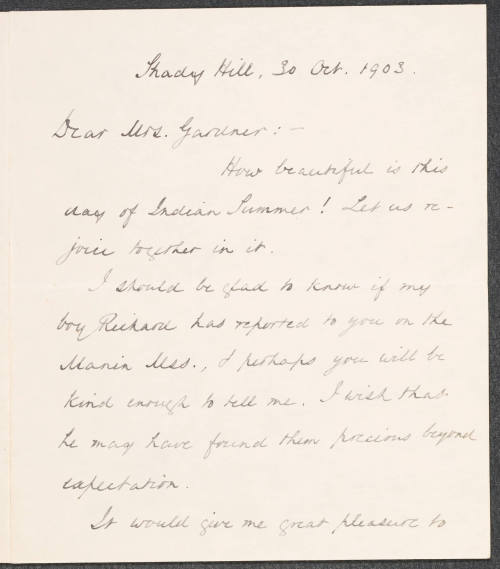 Shady Hill, 30 Oct. 1903.
Dear Mrs. Gardner: –
How beautiful is this
day of Indian Summer! Let us re-
joice together in it.
I should be glad to know if my
boy Richard has reported to you on the
Manin Mss., & perhaps you will be
kind enough to tell me. I wish that
he may have found them precious beyond
expectation.
It would give me great pleasure to